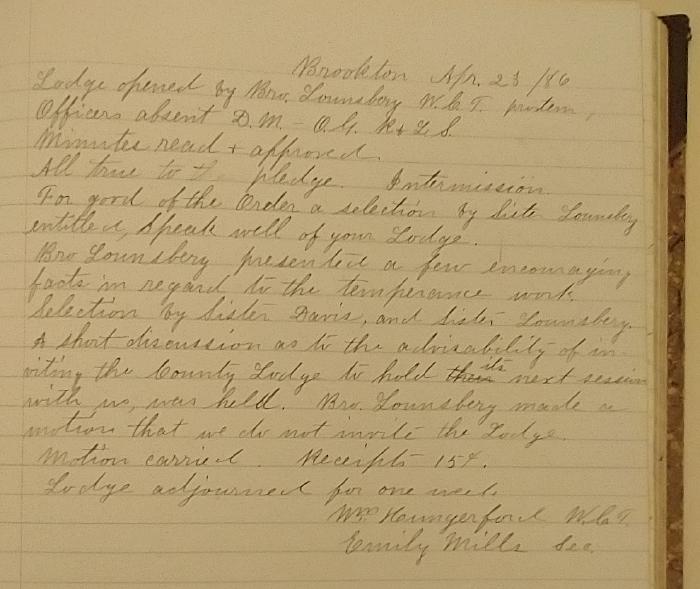 Brookton Apr. 23 /86
Lodge opened by Bro. Lounsbery W.C.T. protem,
Officers absent D.M. - O.G. R & L S.
Minutes read + approved.
All true to the pledge. Intermission.
For good of the Order a selection by Sister Lounsbery
entitled, Speak well of your Lodge.
Bro Lounsbery presented a few encouraging
facts in regard to the temperance work.
Selection by Sister Davis, and Sister Lounsbery.
A short discussion as to the advisability of in-
viting the County Lodge to hold their its next session
with us, was held. Bro. Lounsbery made a
motion that we do not invite the Lodge.
Motion carried. Receipts 15¢.
Lodge adjourned for one week
Wm Hungerford W.C.T.
Emily Mills Sec.